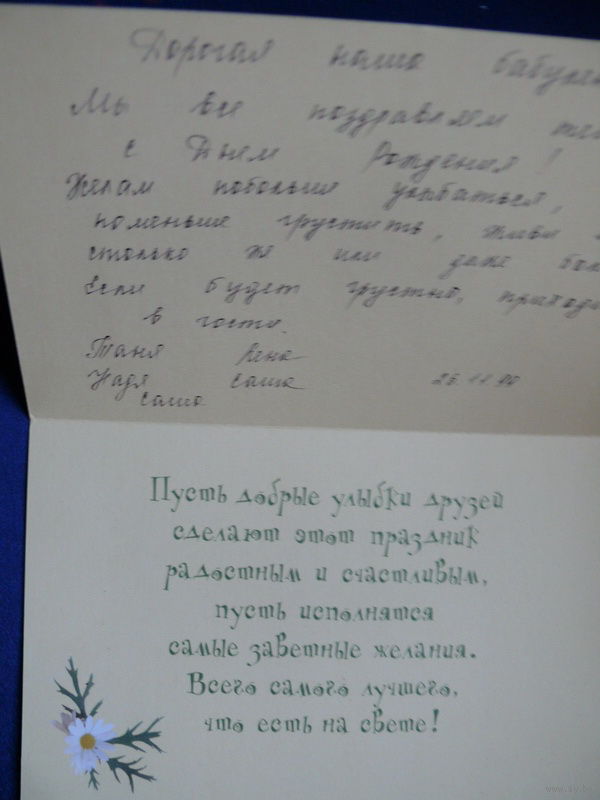 Дорогая наша
Мы все поздравляем
с Днем Рождения!
Желам побольше улыбаться,
поменьше грустить, живи
столько же или даже
Если будет грустно,
в гости.
Таня Лена
Надя Саша
Саша
Пусть добрые улыбки друзей
сделают этот праздник
радостным и счастливым,
пусть исполнятся
самые заветные желания.
Всего самого лучшего,
что есть на свете!